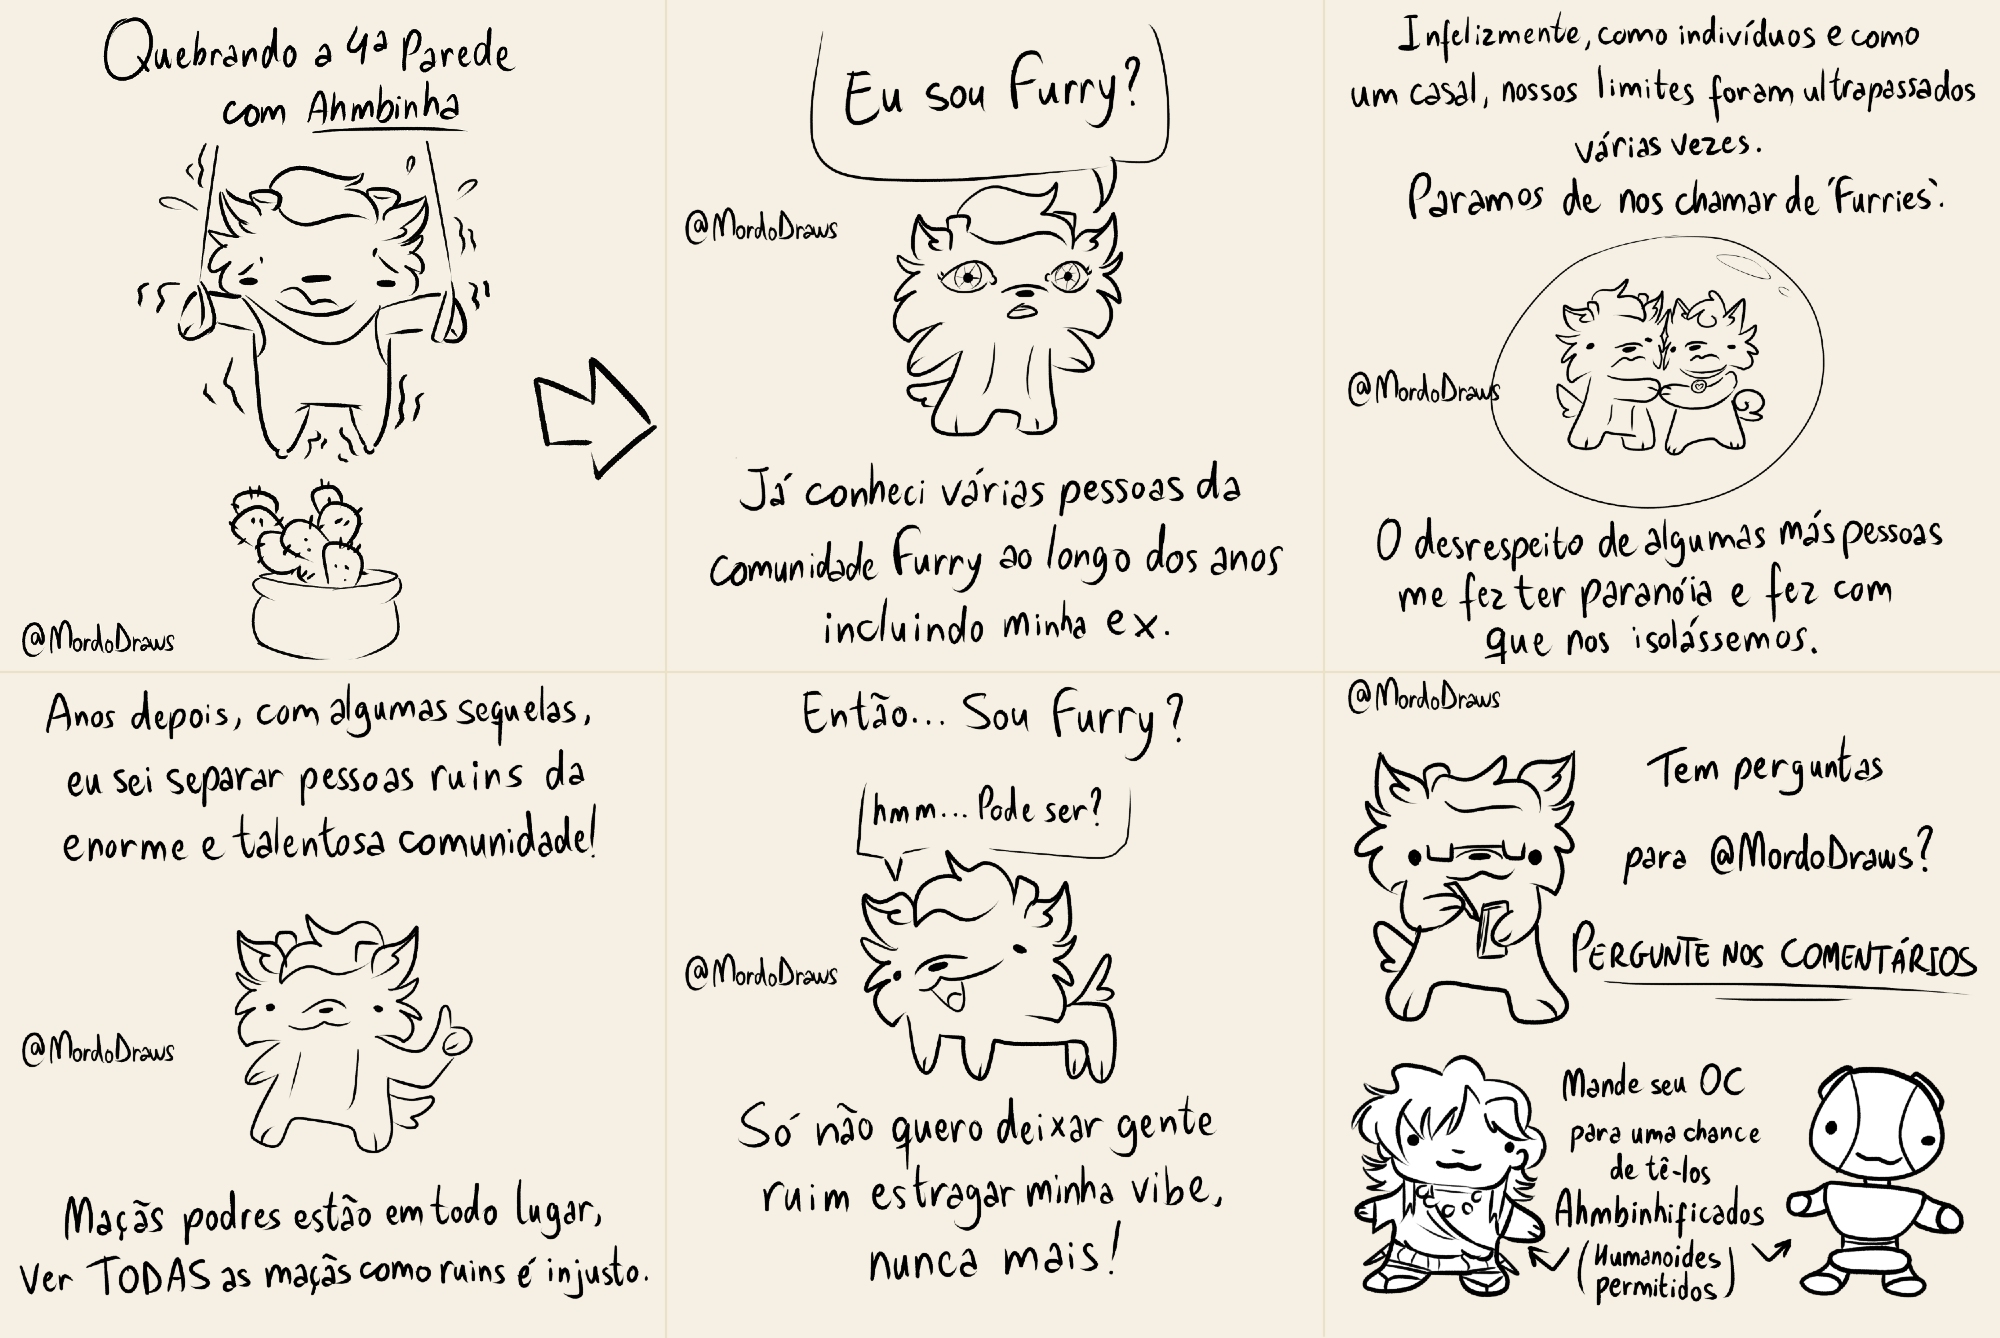 Quebrando a 4ª Parede
com Ahmbinha
@MordoDraws
Eu sou Furry?
@MordoDraws
Já conheci várias pessoas da
comunidade Furry ao longo dos anos
incluindo minha ex.
Infelizmente, como indivíduos e como
um casal, nossos limites foram ultrapassados
várias vezes.
Paramos de nos chamar de 'Furries'.
@MordoDraws
O desrespeito de algumas más pessoas
me fez ter paranóia e fez com
que nos isolássemos.
Anos depois, com algumas sequelas,
eu sei separar pessoas ruins da
enorme e talentosa comunidade!
@MordoDraws
Maçãs podres estão em todo lugar,
ver TODAS as maçãs como ruins é injusto.
Então... Sou Furry?
hmm... Pode ser?
@MordoDraws
Só não quero deixar gente
ruim estragar minha vibe,
nunca mais!
@MordoDraws
Tem perguntas
para @MordoDraws?
PERGUNTE NOS COMENTÁRIOS
Mande seu OC
para uma chance
de tê-los
Ahmbinhificados
(Humanoides
permitidos)